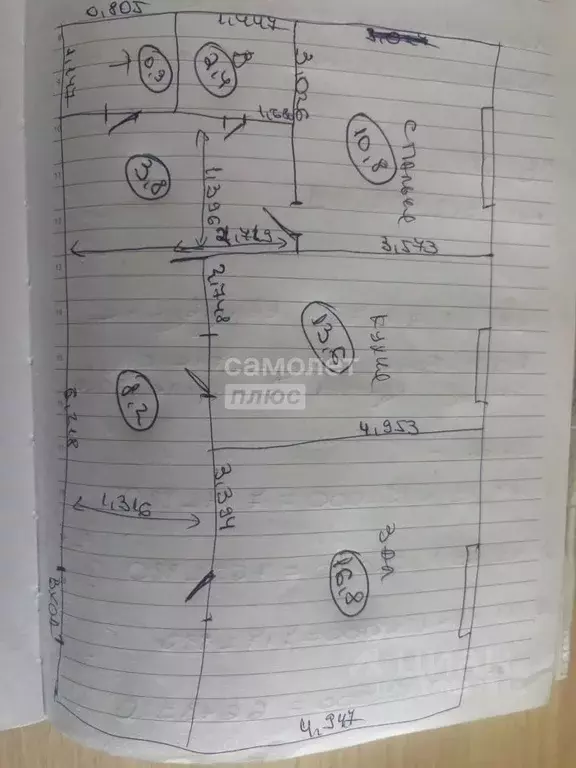 0,805
1,447
1,147
Т
0,9
2,4
В
3,026
1,68
10,8
спальня
3,8
1,396
2,729
3,573
2,748
13,6
кухня
самолет
плюс
8,2
6,218
4,953
1,316
3,394
зал
16,8
Вход
4,947